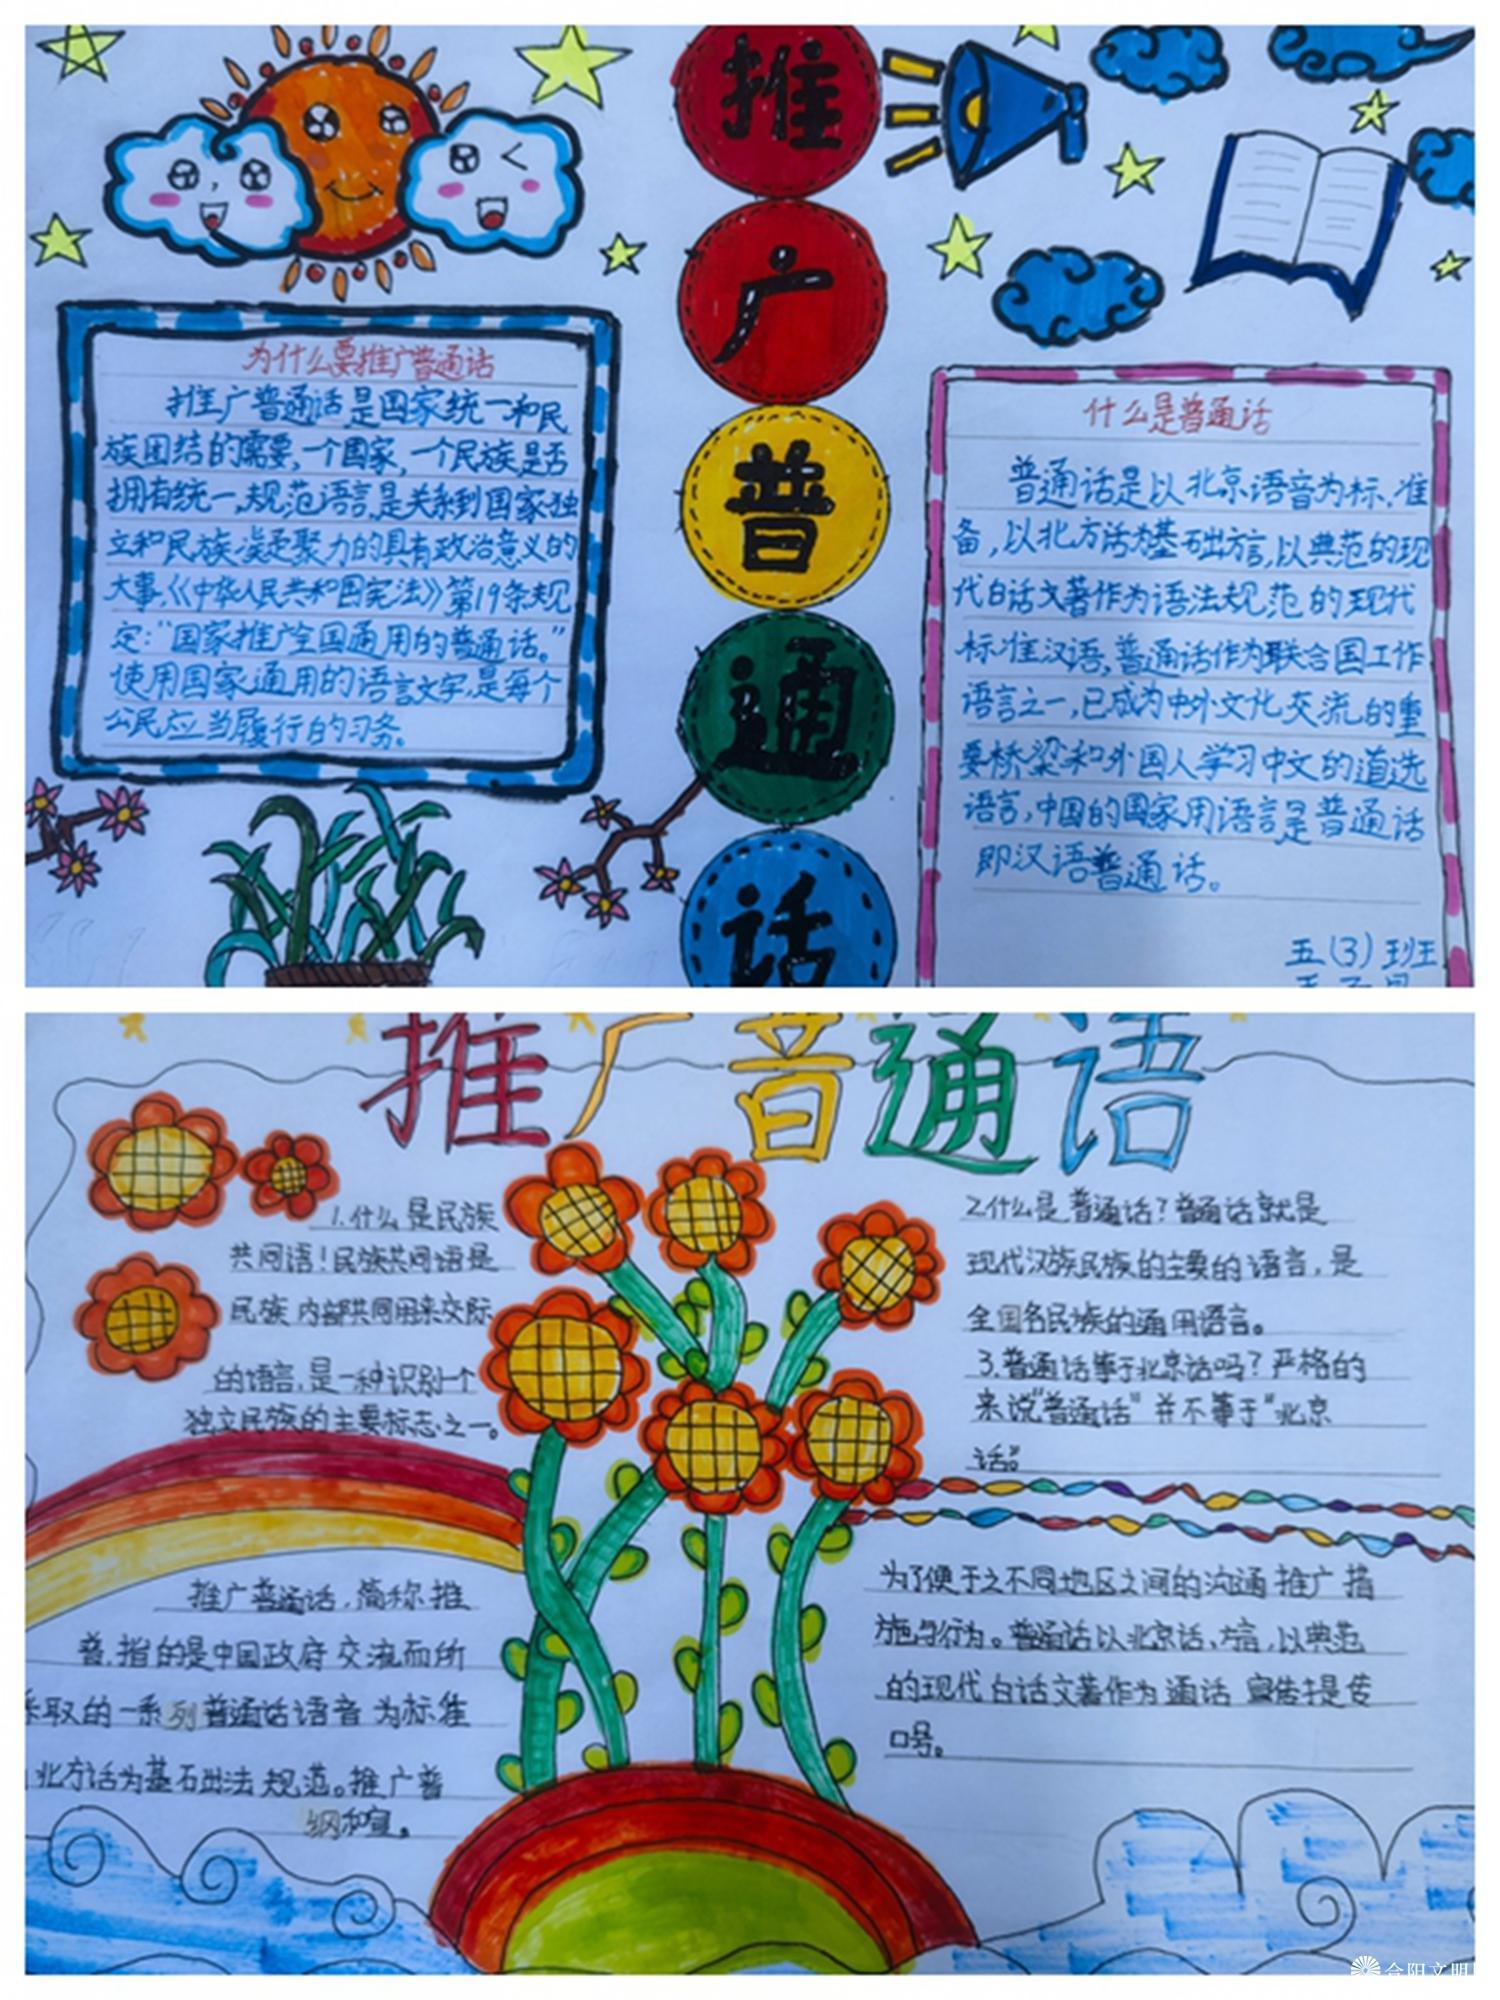 推
广
普
通
话
为什么要推广普通话
推广普通话是国家统一和民
族团结的需要,一个国家,一个民族是否
拥有统一,规范语言,是关系到国家独
立和民族凝聚力的具有政治意义的
大事,《中华人民共和国宪法》第19条规
定:“国家推广全国通用的普通话。”
使用国家通用的语言文字,是每个
公民应当履行的习务。
什么是普通话
普通话是以北京语音为标,准
备,以北方话为基础方言,以典范的现
代白话文著作为语法规范的现代
标准汉语,普通话作为联合国工作
语言之一,已成为中外文化交流的重
要桥梁和外国人学习中文的首选
语言,中国的国家用语言是普通话
即汉语普通话。
五(3)班
推广普通语
1.什么是民族
共同语!民族共同语是
民族内部共同用来交际
的语言,是一种识别一个
独立民族的主要标志之一。
2.什么是普通话?普通话就是
现代汉族民族的主要的语言,是
全国各民族的通用语言。
3.普通话等于北京话吗?严格的
来说“普通话”并不等于“北京
话”。
推广普通话,简称推
普,指的是中国政府交流而所
采取的一系列普通话语音为标准
北方话为基石出法规范。推广普
纲和宣。
为了便于之不同地区之间的沟通推广措
施与行为。普通话以北京话,方言,以典范
的现代白话文著作为通话宣传是专
口号。
合阳文明